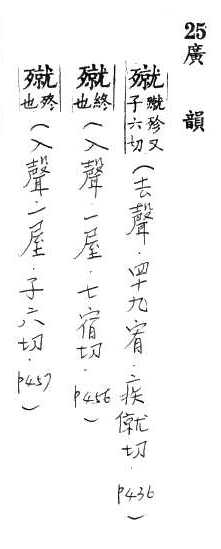 25廣韻
殧殧殄又子六切(去聲·四十九宥·疾僦切·p436)
殧終也(入聲·一屋·七宿切·p456)
殧也(入聲·一屋·子六切·p457)